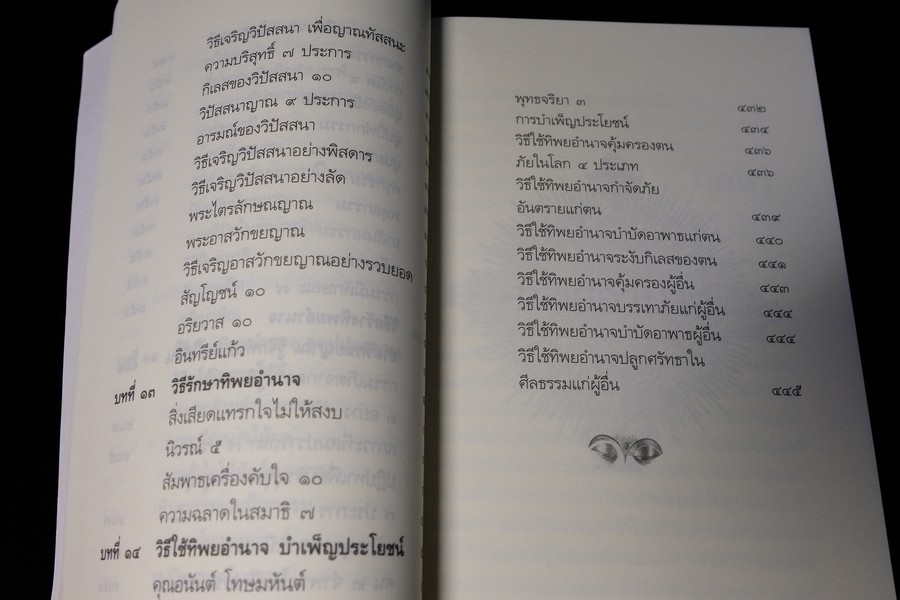 วิธีเจริญวิปัสสนา เพื่อญาณทัสสนะ
ความบริสุทธิ์ ๗ ประการ
กิเลสของวิปัสสนา ๑๐
วิปัสสนาญาณ ๙ ประการ
อารมณ์ของวิปัสสนา
วิธีเจริญวิปัสสนาอย่างพิสดาร
วิธีเจริญวิปัสสนาอย่างลัด
พระไตรลักษณญาณ
พระอาสวักขยญาณ
วิธีเจริญอาสวักขยญาณอย่างรวบยอด
สัญโญชน์ ๑๐
อริยวาส ๑๐
อินทรีย์แก้ว
บทที่ ๑๓ วิธีรักษาทิพยอำนาจ
สิ่งเสียดแทรกใจไม่ให้สงบ
นิวรณ์ ๕
สัมพาธเครื่องคับใจ ๑๐
ความฉลาดในสมาธิ ๗
บทที่ ๑๔ วิธีใช้ทิพยอำนาจ บำเพ็ญประโยชน์
คุณอนันต์ โทษมหันต์
พุทธจริยา ๓ ๔๓๒
การบำเพ็ญประโยชน์ ๔๓๔
วิธีใช้ทิพยอำนาจคุ้มครองตน ๔๓๖
ภัยในโลก ๔ ประเภท ๔๓๖
วิธีใช้ทิพยอำนาจกำจัดภัย
อันตรายแก่ตน ๔๓๙
วิธีใช้ทิพยอำนาจบำบัดอาพาธแก่ตน ๔๔๐
วิธีใช้ทิพยอำนาจระงับกิเลสของตน ๔๔๑
วิธีใช้ทิพยอำนาจคุ้มครองผู้อื่น ๔๔๓
วิธีใช้ทิพยอำนาจบรรเทาภัยแก่ผู้อื่น ๔๔๔
วิธีใช้ทิพยอำนาจบำบัดอาพาธผู้อื่น ๔๔๔
วิธีใช้ทิพยอำนาจปลูกศรัทธาใน
ศีลธรรมแก่ผู้อื่น ๔๔๕